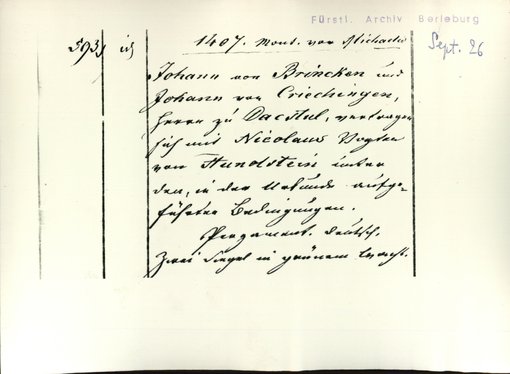 Fürstl. Archiv Berleburg
Sept. 26
593
1407. Mont. vor Michaelis
Johann von Brincken und
Johann von Criechingen,
Herrn zu Dacstul, vertragen
sich mit Nicolaus Vogten
von Hundstein unter
den, in der Urkunde aufge-
führten Bedingungen.
Pergament. Deutsch.
Zwei Siegel in grünem Wachs.